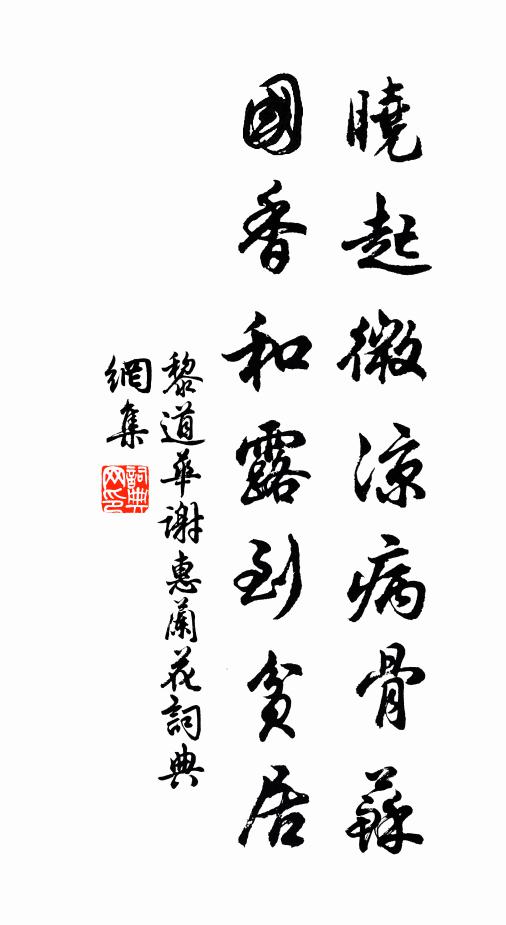 曉起微涼病骨蘇
國香和露到貧居
黎道華謝惠蘭花詞典
網集
詞典網印